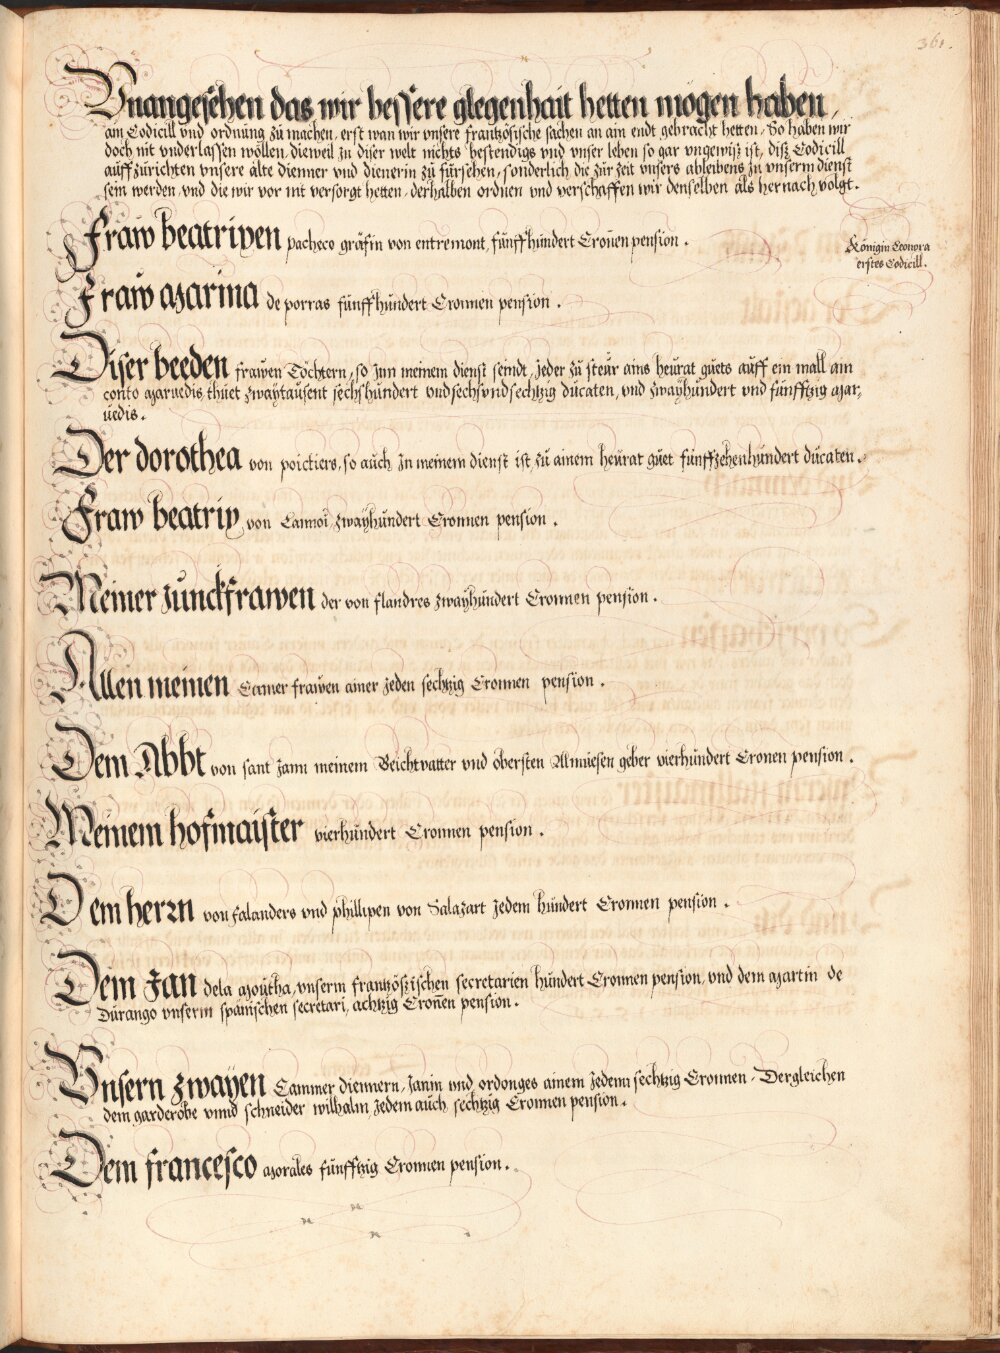 361.
Vnangesehen das wir bessere glegenhait hetten mögen haben,
ain Codicill vnd ordnung zu machen, erst wan wir vnsere frantzösische sachen an ain endt gebracht hetten, So haben wir
doch nit vnderlassen wöllen, dieweil zu diser welt nichts bestendigs vnd vnser leben so gar vngewiß ist, diß Codicill
auffzürichten vnsere alte dienner vnd dienerin zu fürsehen, sonderlich die zür zeit vnsers ableibens zu vnserm dienst
sein werden, vnd die wir vor nit versorgt hetten, derhalben ordnen vnd verschaffen wir denselben als hernach volgt.
Königin Leonora
erstes Codicill.
Fraw beatrixen pacheco gräfin von entremont, fünffhundert Cronen pension.
Fraw Maria de porras fünffhündert Cronnen pension.
Diser beeden frawen Töchtern, so Inn meinem dienst seindt, Jeder zü steür ains heürat güets aüff ein mall ain
conto Maruedis thüet zwaytaüsent sechshündert vndsechsvndsechtzig ducaten, vnd zwayhündert vnd fünfftzig Mar,
üedis.
Der dorothea von poictiers, so aüch In meinem dienst ist, zü ainem heürat güet fünffzehenhündert dücaten.
Fraw beatrix von Lannoi zwayhündert Cronnen pension.
Meiner Junckfrawen der von flandres zwayhündert Cronnen pension.
Allen meinen Camer frawen ainer Jeden sechtzig Cronnen pension.
Dem Abbt von sant Jann meinem Beichtvatter vnd obersten Almüesen geber vierhündert Cronen pension.
Meinem hofmaister vierhündert Cronnen pension.
Dem herrn von falanders vnd phillipen von Salazart Jedem hündert Cronnen pension.
Dem Jan dela Moütha, vnserm frantzösischen secretarien hündert Cronnen pension, vnd dem Martin de
Dürango vnserm spanischen secretari, achtzig Cronen pension.
Vnsern zwayen Cammer diennern, Janin vnd ordonges ainem Jedenn sechtzig Cronnen, Dergleichen
dem garderobe vnnd schneider wilhalm Jedem aüch sechtzig Cronnen pension.
Dem francesco Morales fünfftzig Cronnen pension.